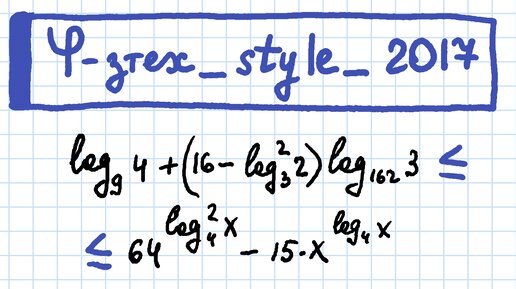 Ψ-зтех_style_2017
log₉4 + (16 - log₃²2) log₁₆₂3 ≤
≤ 64^(log₄²x) - 15·x^(log₄x)